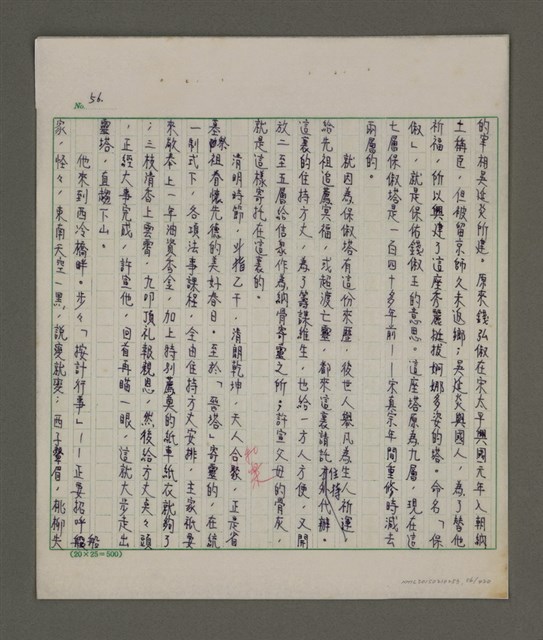 No. 56.
的宰相吳延爽所建。原來錢弘俶在宋太平興國元年入朝納
土稱臣，但被留京師久未返鄉；吳延爽與國人，為了替他
祈福，所以興建了這座秀麗挺拔婀娜多姿的塔。命名「保
俶」，就是保佑錢俶王的意思。這座塔原為九層，現在這
七層保俶塔是一百四十多年前——宋真宗年間重修時減去
兩層的。
就因為保俶塔有這份來歷，後世人舉凡為生人祈運，
給先祖追薦冥福，或超渡亡靈，都來這裏請託住持代辦。
這裏的住持方丈，為了籌謀維生，也給一方人方便，又開
放二至五層給信眾作為納骨寄靈之所；許宣父母的骨灰，
就是這樣寄託在這裏的。
清明時節，斗指乙干，清朗乾坤，天人合聚，正是省
墓祭祖眷懷先德的美好春日。至於「登塔」寄靈的，在統
一制式下，各項法事課程，全由住持方丈安排，主家祇要
來啟奉上一年油資香金，加上特別薦奠的紙車紙衣就夠了
；三枝清香上雲霄，九叩頂禮報親恩，然後給方丈夫夫頭
，正經大事完成，許宣他，回首再瞄一眼，這就大步走出
靈塔，直趨下山。
他來到西冷橋畔。步步「按計行事」——正要招呼船
家，怪怪，東南天空一黑，說變就變；西子顰眉，桃柳失
(20×25=500)